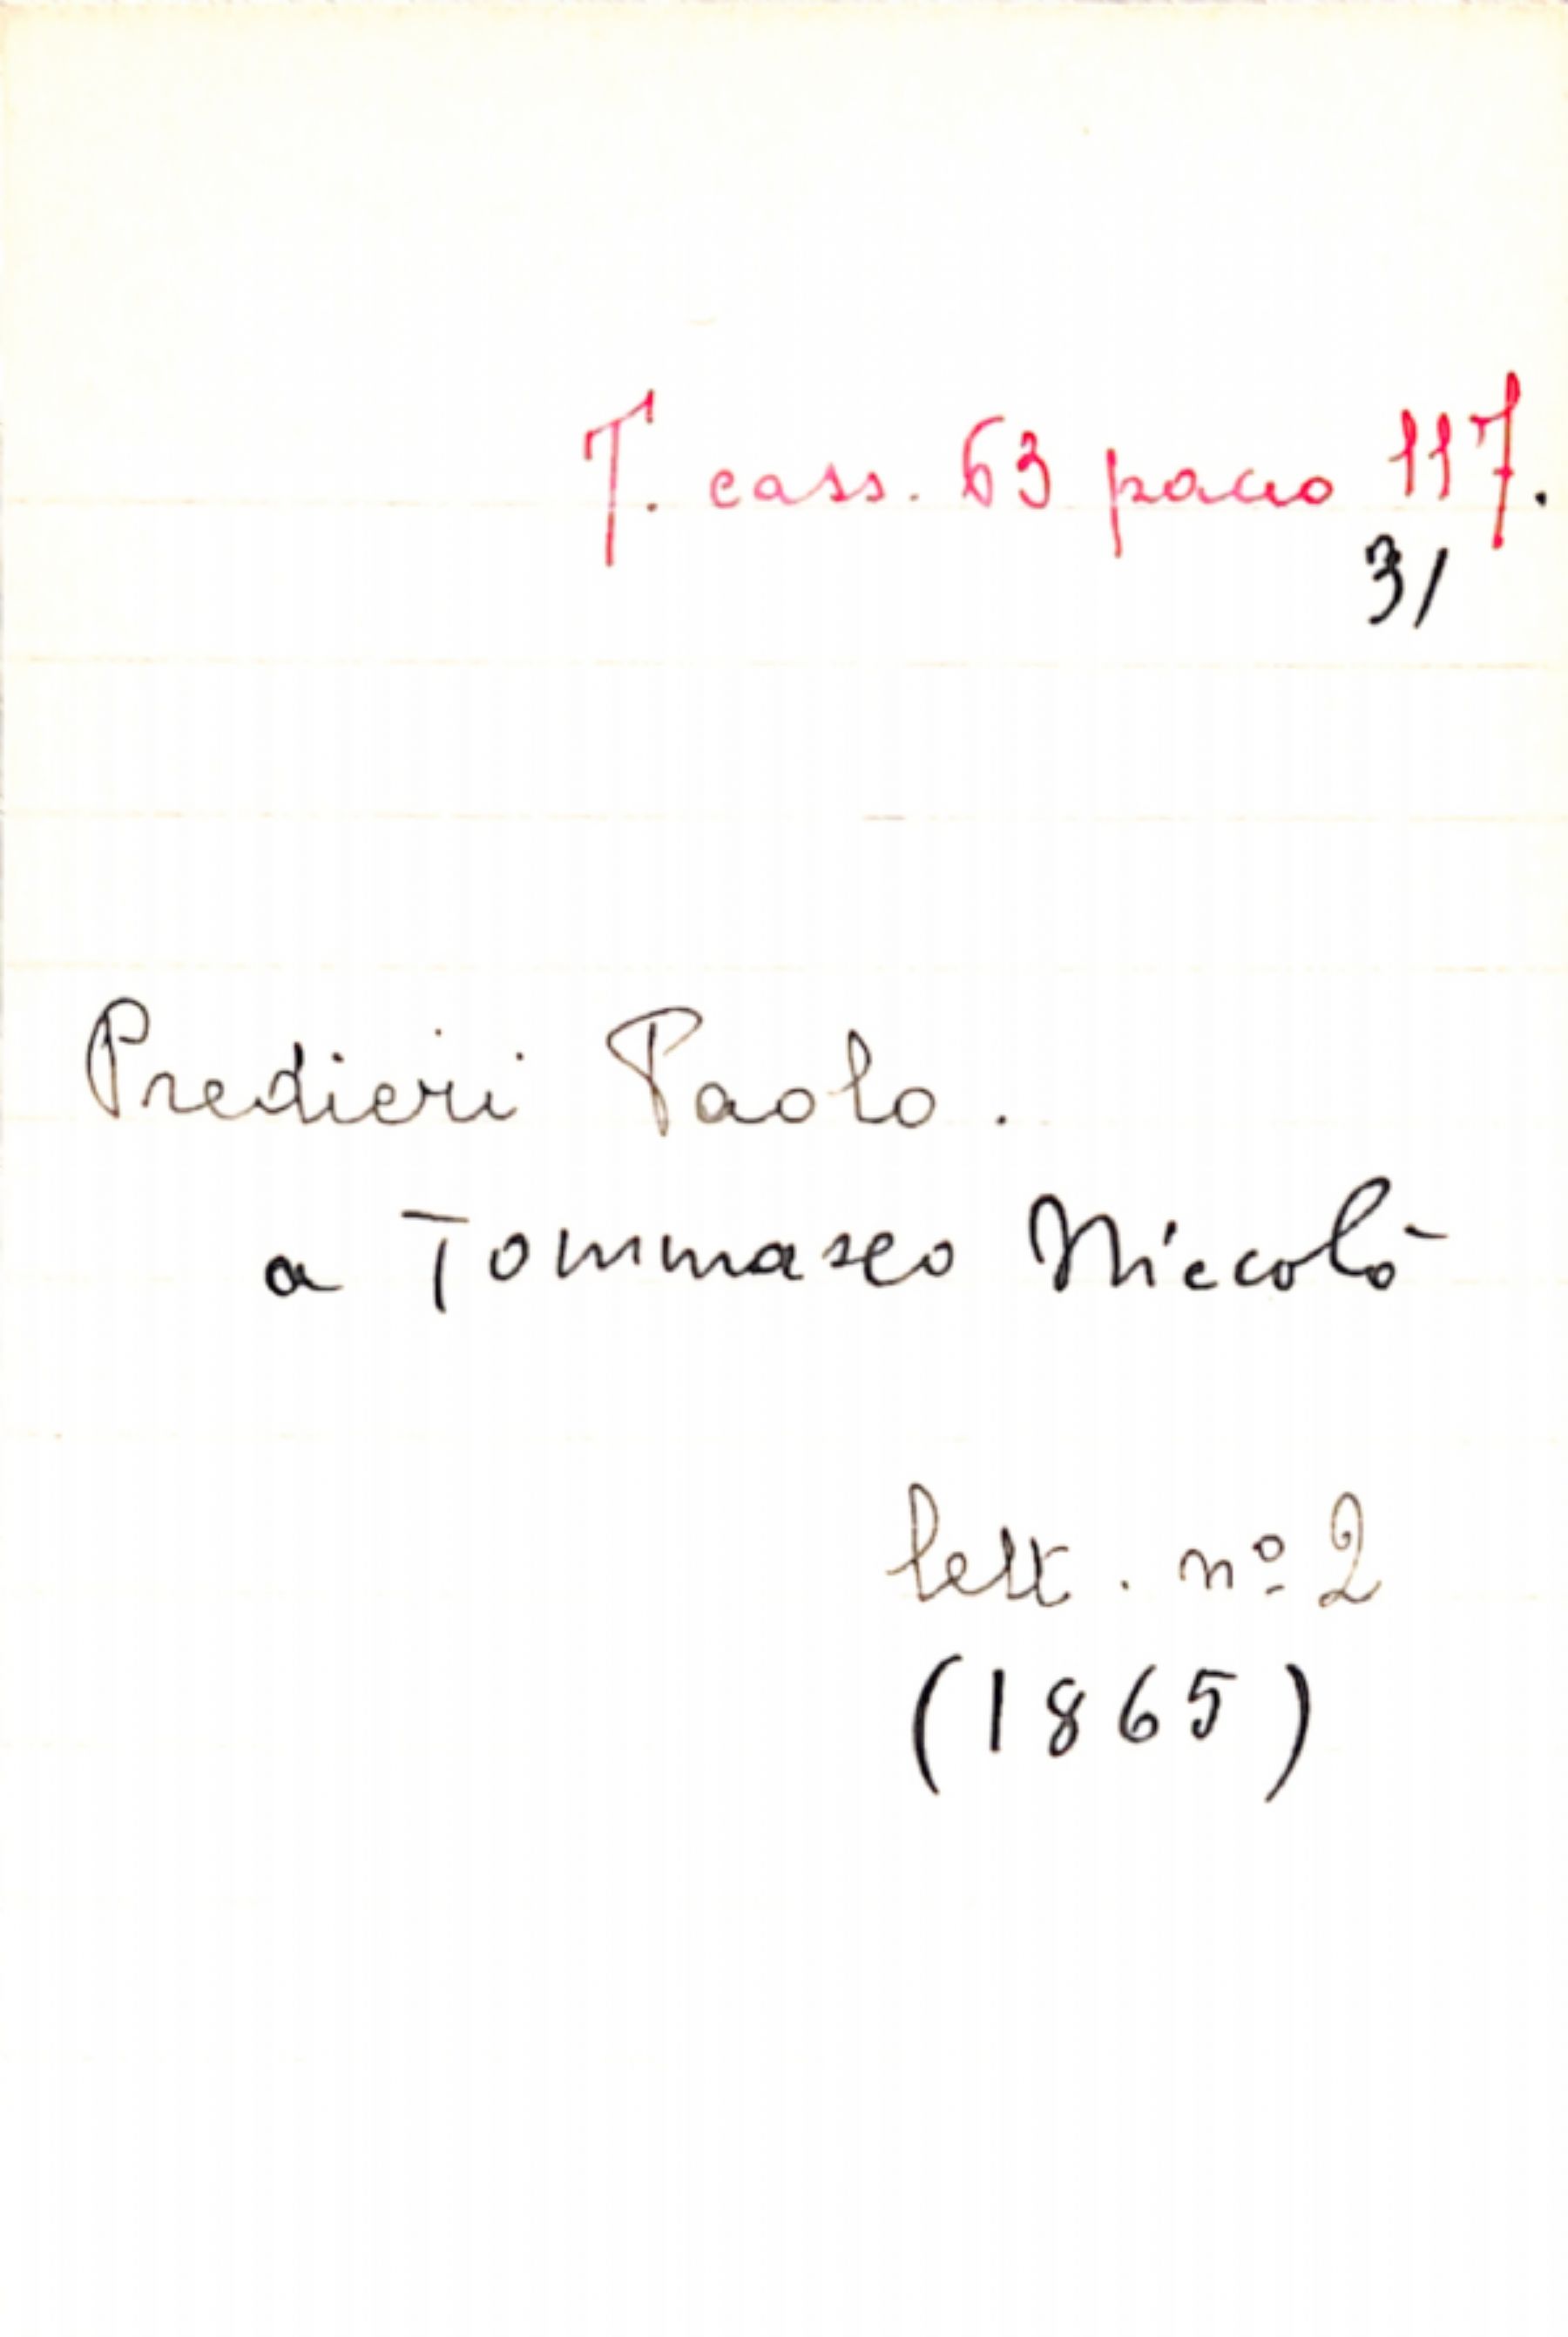 T. cass. 63 pacco 117.
3/
Predieri Paolo.
a Tommaseo Niccolò
lett. nº 2
(1865)